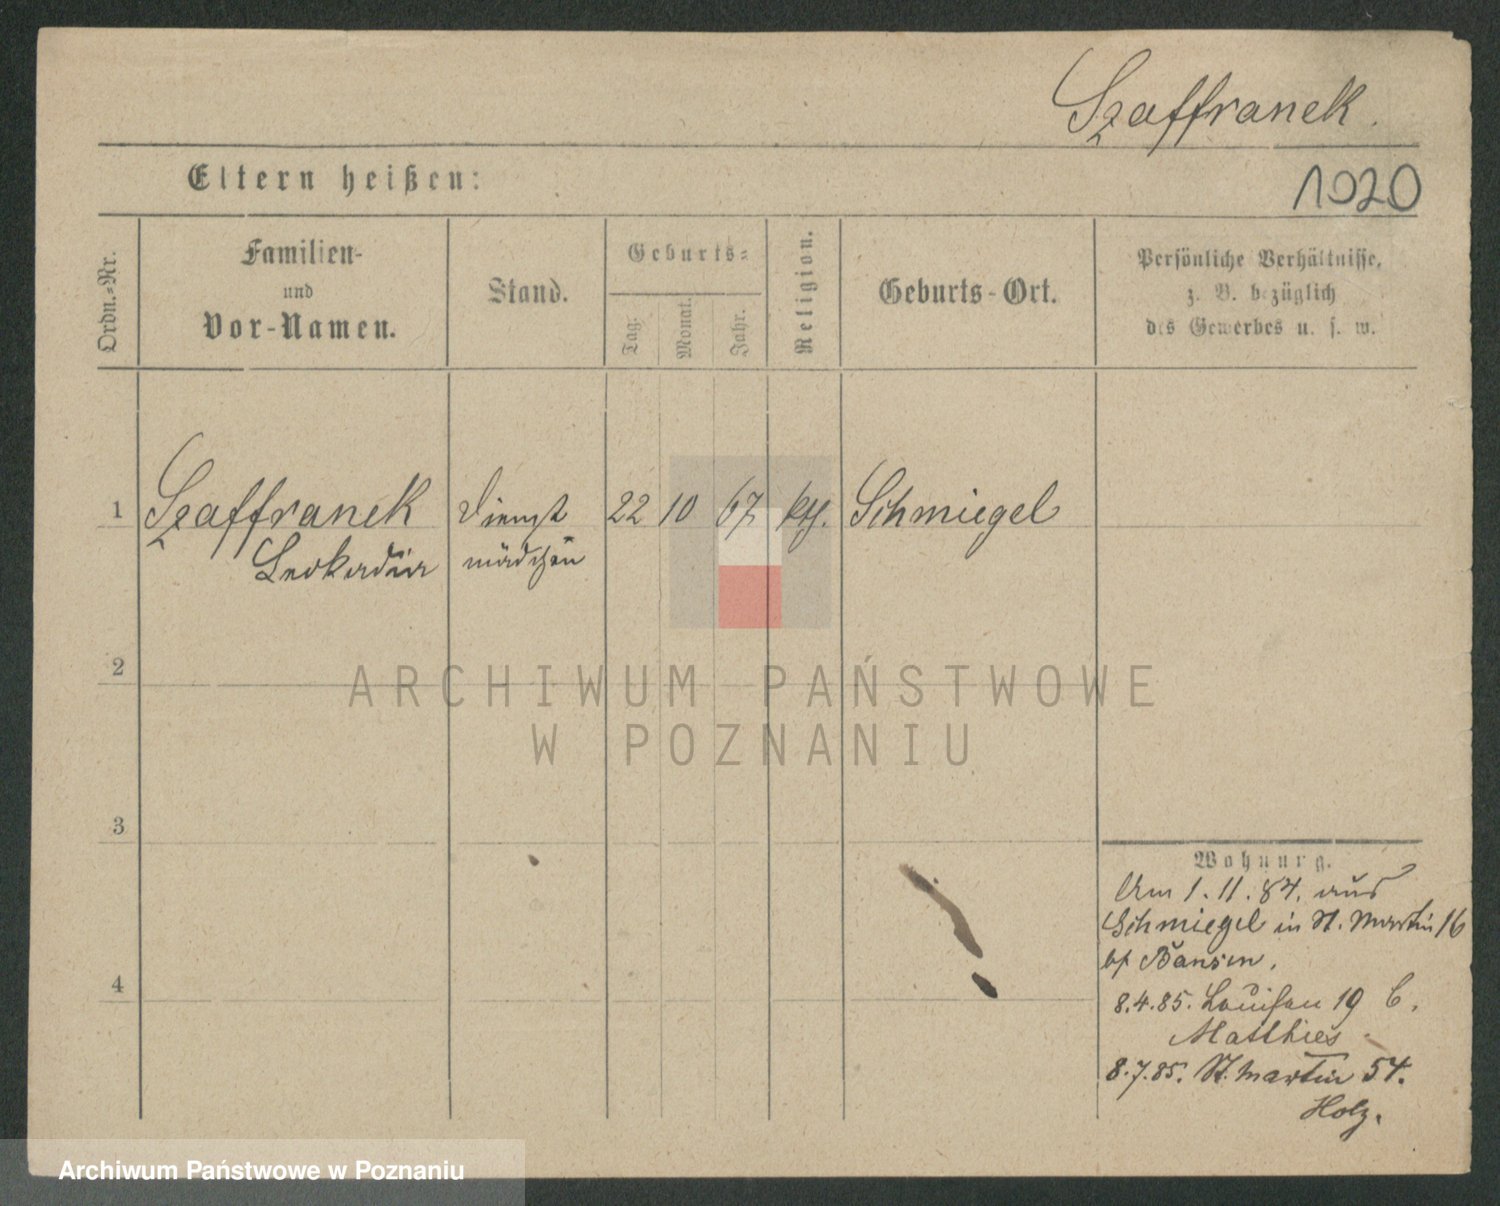 Szaffranek.
Eltern heißen:
1020
Ordn.-Nr.
Familien-
und
Vor-Namen.
Stand.
Geburts-
Tag.
Monat.
Jahr.
Religion.
Geburts-Ort.
Persönliche Verhältnisse,
z. B. bezüglich
des Gewerbes u. s. w.
1 Szaffranek Dienst 22 10 67 kth. Schmiegel
Leokadia mädchen
2
ARCHIWUM PAŃSTWOWE
W POZNANIU
3
Wohnung.
Am 1. 11. 84. aus
Schmiegel in St. Martin 16
Bansen.
4
8.4.85. Louisen 19 b.
Matthies
8.7.85. St. Martin 54.
Holz.
Archiwum Państwowe w Poznaniu